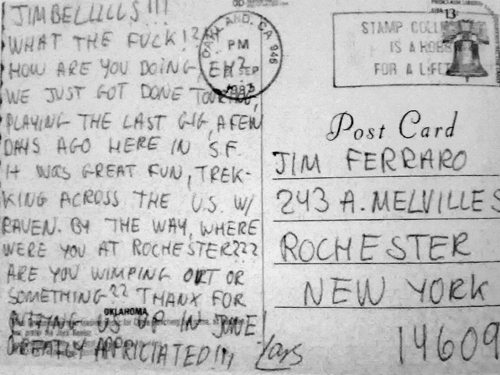 JIMBELLLLS!!!
WHAT THE FUCK!??
HOW ARE YOU DOING, EH?
WE JUST GOT DONE TOURING,
PLAYING THE LAST GIG, A FEW
DAYS AGO HERE IN S.F.
IT WAS GREAT FUN, TREK-
KING ACROSS THE U.S. W/
RAVEN. BY THE WAY, WHERE
WERE YOU AT ROCHESTER???
ARE YOU WIMPING OUT OR
SOMETHING?? THANX FOR
PUTTING US UP IN JUNE!
GREATLY APPRICIATED!!!
Lars
OKLAHOMA
OAKLAND, CA 946
PM
SEP
1983
STAMP
IS A HOBBY
FOR A LIFETIME
13
Post Card
JIM FERRARO
243 A. MELVILLE S
ROCHESTER
NEW YORK
14609